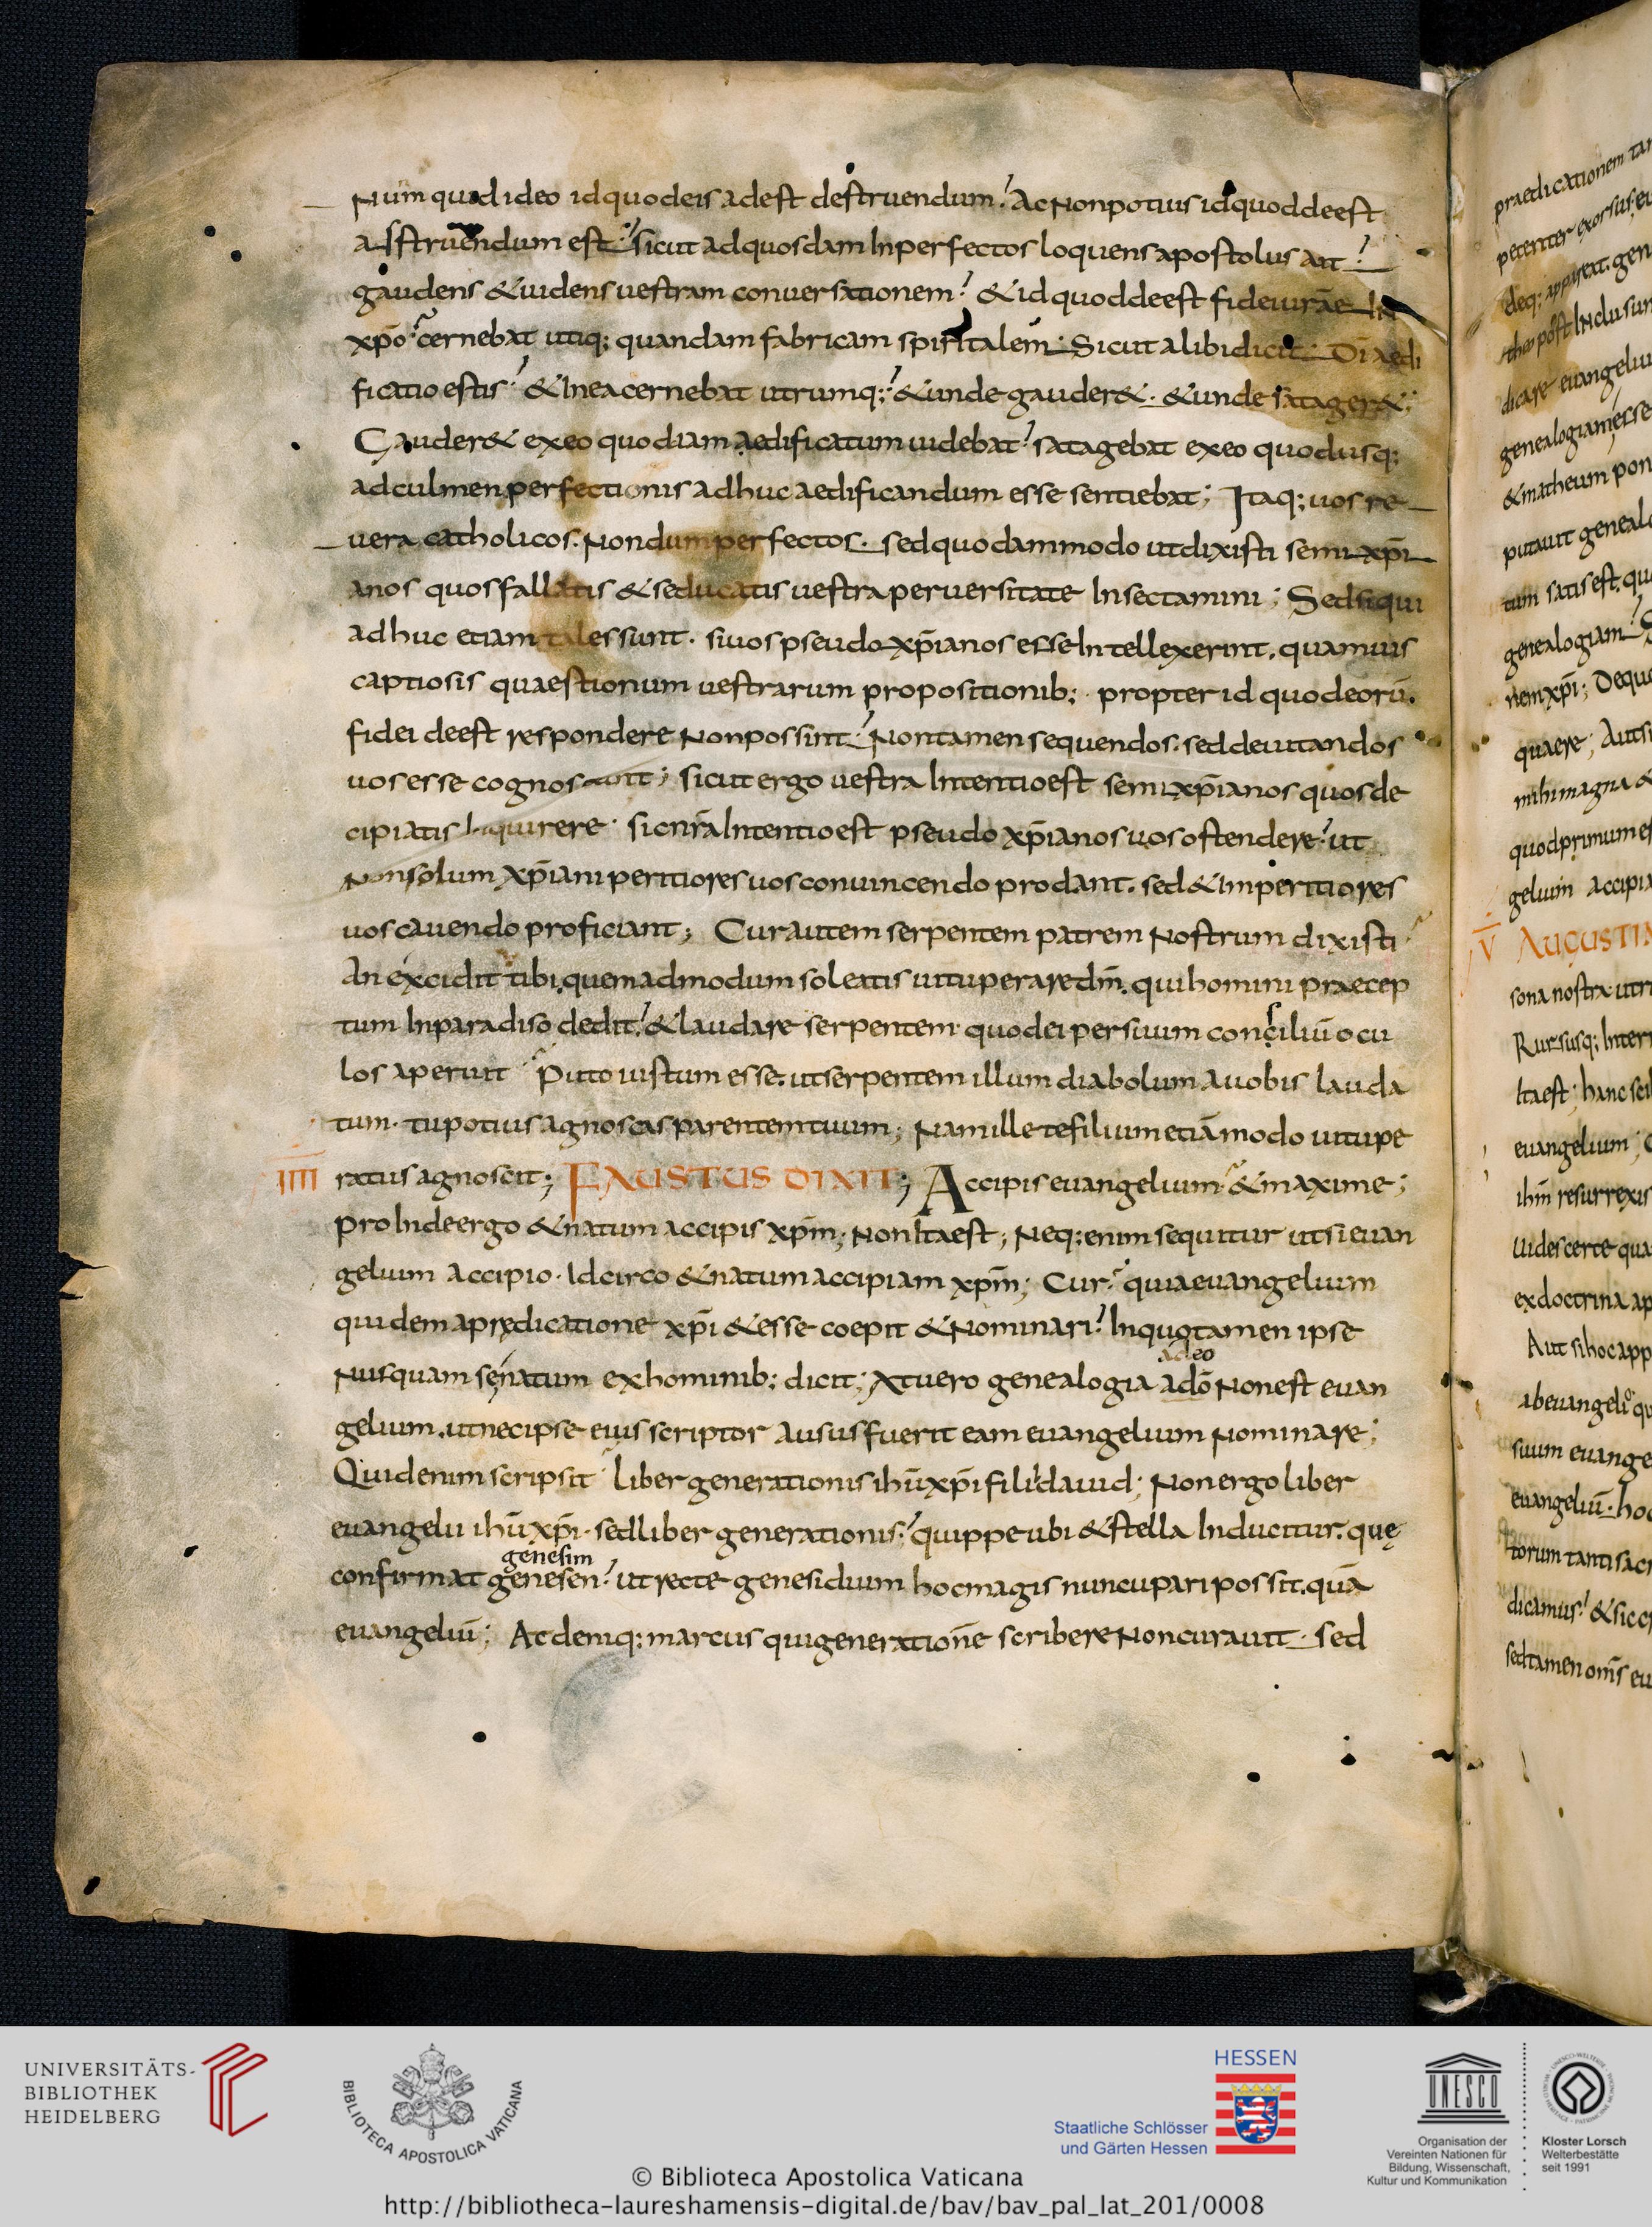 Num quod ideo id quod eis adest destruendum? Ac Non potius id quod deest
asstruendum est? sicut ad quosdam Inperfectos loquens apostolus ait?
gaudens & uidens uestram conuersationem? & id quod deest fidei urae In
xpo? cernebat utiq; quandam fabricam spiritalem; Sicut alibi dicit; Di aedi
ficatio estis? & In ea cernebat utrumq;? & unde gauder&. & unde satager&;
Gauder& ex eo quod iam aedificatum uidebat? satagebat ex eo quod usq;
ad culmen perfectionis adhuc aedificandum esse sentiebat; Itaq; uos re
uera catholicos. Nondum perfectos. sed quodammodo ut dixisti semi xpi
anos quos fallatis & seducatis uestra peruersitate Insectamini; Sed si qui
adhuc etiam tales sunt. si uos pseudo xpianos esse Intellexerint. quamuis
captiosis quaestionum uestrarum propositionib; propter id quod eorū.
fidei deest respondere Non possint? Non tamen sequendos. sed deuitandos
uos esse cognoscunt; sicut ergo uestra Intentio est semixpianos quos de
cipiatis Inquirere. sic nra Intentio est pseudo xpianos uos ostendere? ut
Non solum xpiani peritiores uos conuincendo prodant. sed & Imperitiores
uos cauendo proficiant; Cur autem serpentem patrem Nostrum dixisti
An excidit tibi. quemadmodum soletis uituperare dm. qui homini praecep
tum In paradiso dedit? & laudare serpentem quod ei per suum conciliū ocu
los aperuit Puto iustum esse. ut serpentem illum diabolum a uobis lauda
tum. tu potius agnoscas parentem tuum; Nam ille te filium etiā modo uitupe
IIII ratus agnoscit; FAUSTUS DIXIT; Accipis euangelium & maxime;
Pro Inde ergo & natum accipis xpm; Non Ita est; Neq; enim sequitur ut si euan
gelium accipio. Idcirco & natum accipiam xpm; Cur? quia euangelium
quidem a prędicatione xpi & esse coepit & Nominari? In quo tamen ipse
adeo
Nusquam se natum ex hominib; dicit; At uero genealogia ado Non est euan
gelium. ut nec ipse eius scriptor ausus fuerit eam euangelium Nominare;
Quid enim scripsit liber generationis ihū xpi filii dauid; Non ergo liber
euangelii ihū xpi. sed liber generationis? quippe ubi & stella Inducitur. quę
genesim
confirmat genesen? ut recte genesidium hoc magis nuncupari possit. quā
euangeliū; Ac deniq; marcus qui generationē scribere Non curauit. sed
praedicationem
apparext. gen
post Inclusum
dicare euangeliu
genealogiam esse
& matheum pon
putauit geneal
tum satis est. qu
genealogiam? S
nem xpi; Dequo
quaere; Aut si
mihi magna &
quod primum es
gelium accipia
V AUGUSTIN
sona nostra utr
Rursusq; Inter
Ita est; hanc sci
euangelium;
ihm resurrexis
Uides certe qua
ex doctrina ap
Aut si hoc app
ab euangelio qu
suum euange
euangeliū. hoc
torum tanti sac
dicamus? & sic c
sed tamen oms eu
UNIVERSITÄTS-
BIBLIOTHEK
HEIDELBERG
BIBLIOTECA APOSTOLICA VATICANA
HESSEN
Staatliche Schlösser
und Gärten Hessen
UNESCO
Organisation der
Vereinten Nationen für
Bildung, Wissenschaft,
Kultur und Kommunikation
Kloster Lorsch
Welterbestätte
seit 1991
© Biblioteca Apostolica Vaticana
http://bibliotheca-laureshamensis-digital.de/bav/bav_pal_lat_201/0008